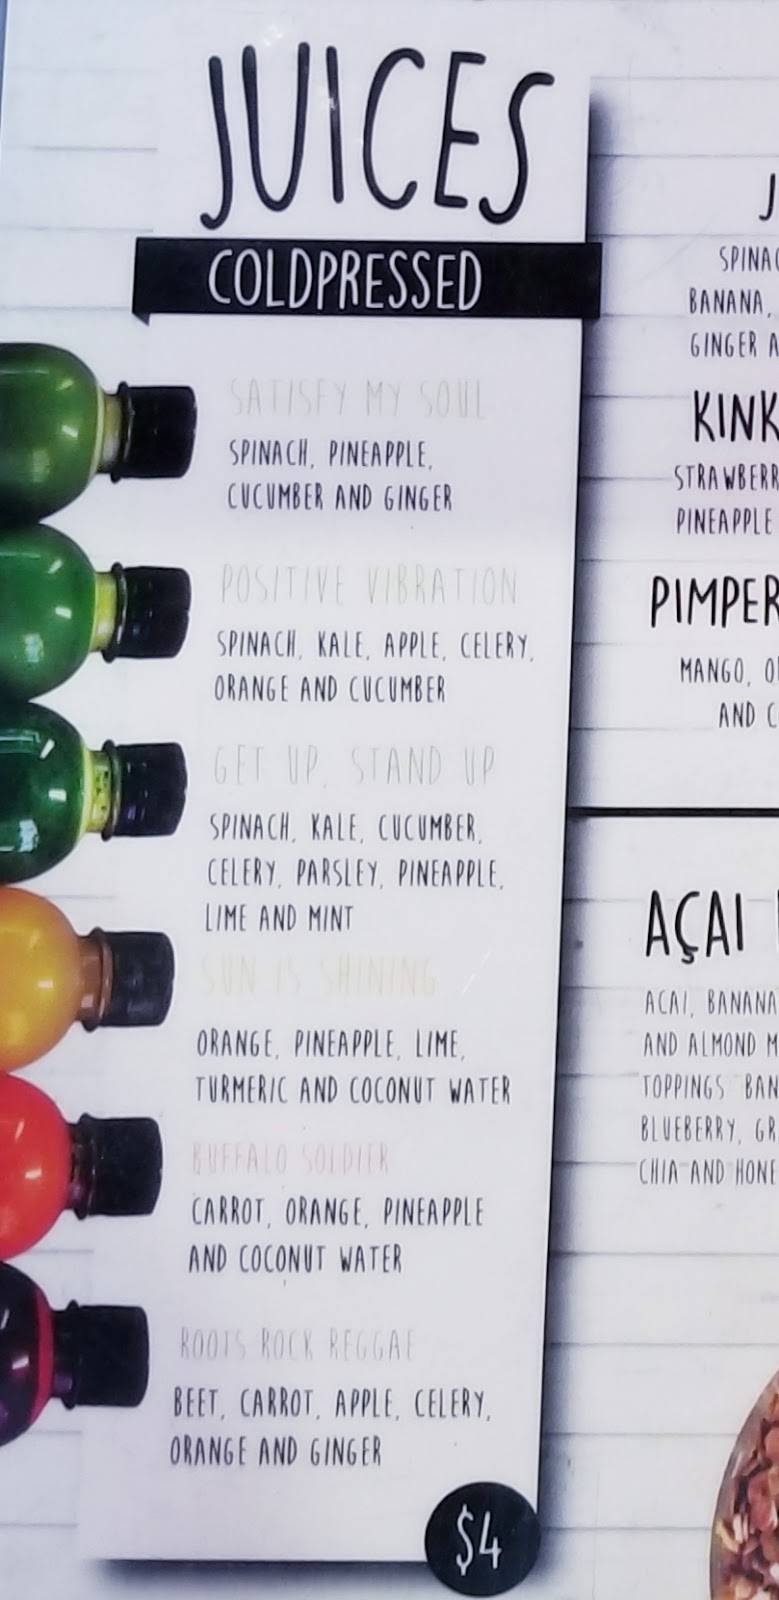 JUICES
COLDPRESSED
SATISFY MY SOUL
SPINACH, PINEAPPLE,
CUCUMBER AND GINGER
POSITIVE VIBRATION
SPINACH, KALE, APPLE, CELERY,
ORANGE AND CUCUMBER
GET UP, STAND UP
SPINACH, KALE, CUCUMBER,
CELERY, PARSLEY, PINEAPPLE,
LIME AND MINT
SUN IS SHINING
ORANGE, PINEAPPLE, LIME,
TURMERIC AND COCONUT WATER
BUFFALO SOLDIER
CARROT, ORANGE, PINEAPPLE
AND COCONUT WATER
ROOTS ROCK REGGAE
BEET, CARROT, APPLE, CELERY,
ORANGE AND GINGER
$4
BANANA,
GINGER
PINEAPPLE
MANGO,
AND
AÇAI
ACAI, BANANA
AND ALMOND
TOPPINGS
BLUEBERRY,
CHIA AND